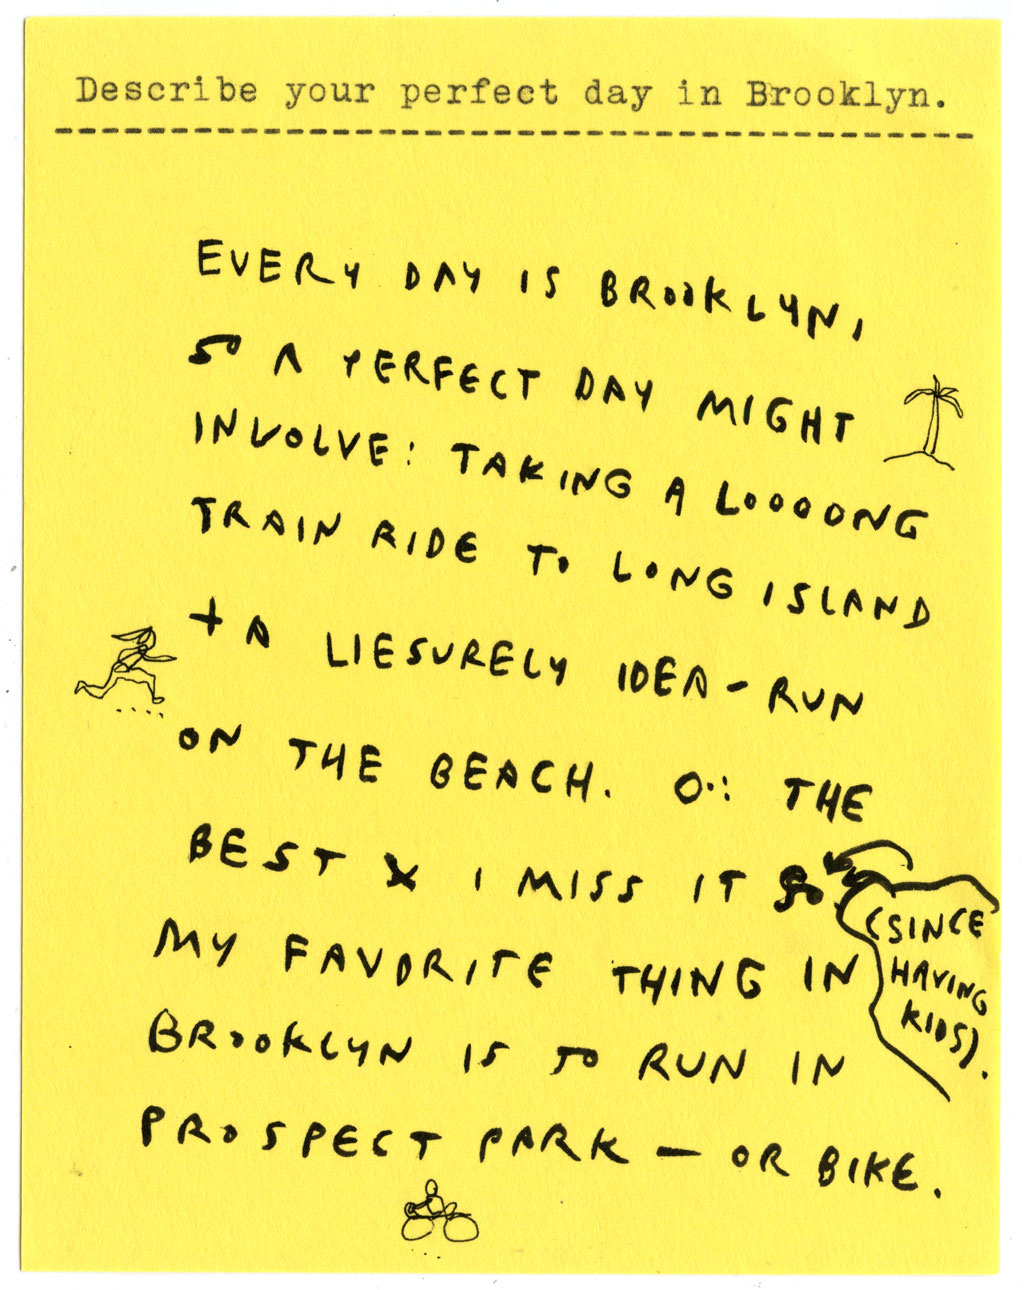 Describe your perfect day in Brooklyn.
EVERY DAY IS BROOKLYN,
SO A PERFECT DAY MIGHT
INVOLVE: TAKING A LOOOONG
TRAIN RIDE TO LONG ISLAND
+ A LIESURELY IDEA-RUN
ON THE BEACH. THE
BEST I MISS IT
(SINCE
HAVING
KIDS).
MY FAVORITE THING IN
BROOKLYN IS TO RUN IN
PROSPECT PARK — OR BIKE.